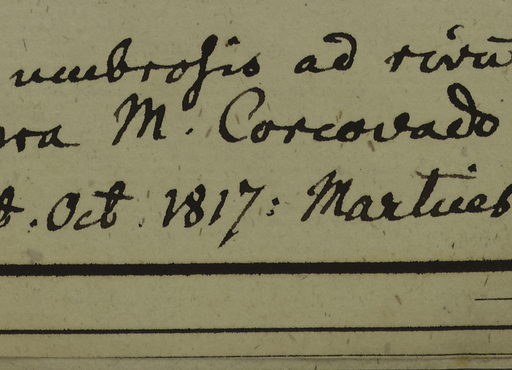 umbrosis ad rivū
ra M. Corcovado
t. Oct. 1817: Martius